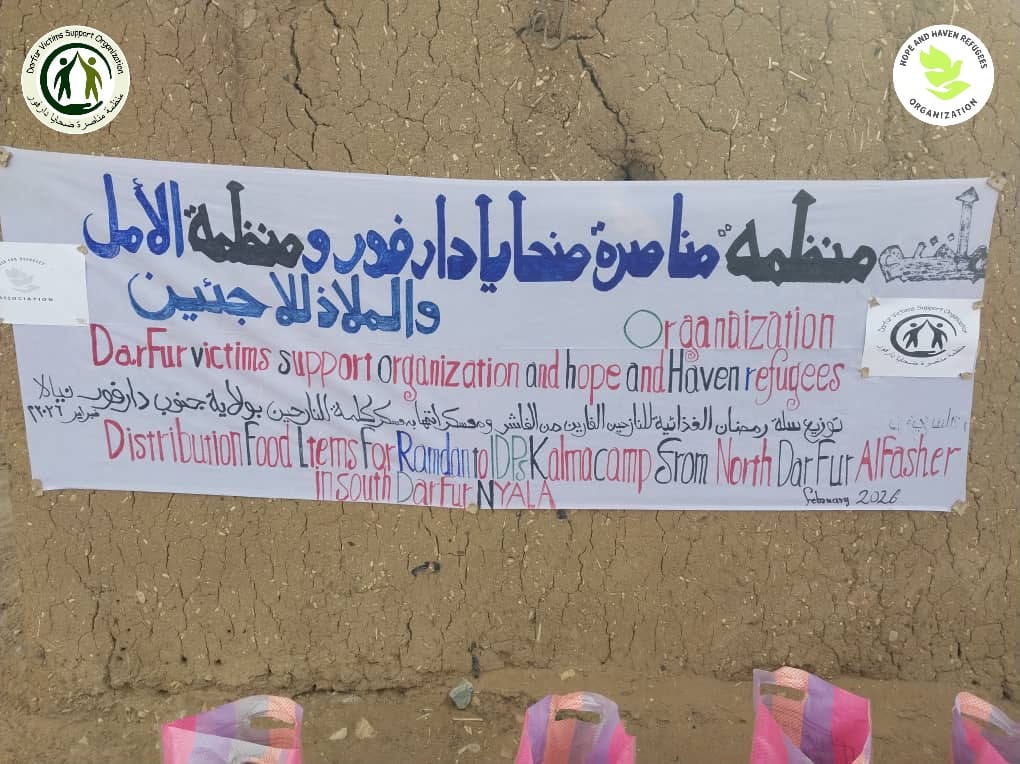 Darfur Victims Support Organization
منظمة مناصرة ضحايا دارفور
HOPE AND HAVEN REFUGEES
ORGANIZATION
منظمة مناصرة ضحايا دارفور ومنظمة الأمل
والملاذ للاجئين
ASSOCIATION
Organaization
Darfur Victims Support Organization
منظمة مناصرة ضحايا دارفور
DarFur victims support organization and hope and Haven refugees
توزيع سلة رمضان الغذائية للنازحين الفارين من الفاشر ومعسكر كلمة للنازحين بولاية جنوب دارفور نيالا
فبراير ٢٠٢٦
Distribution Food Ltems For Ramdan to IDPs Kalma camp & from North DarFur AlFasher
in south DarFur NYALA
February 2026